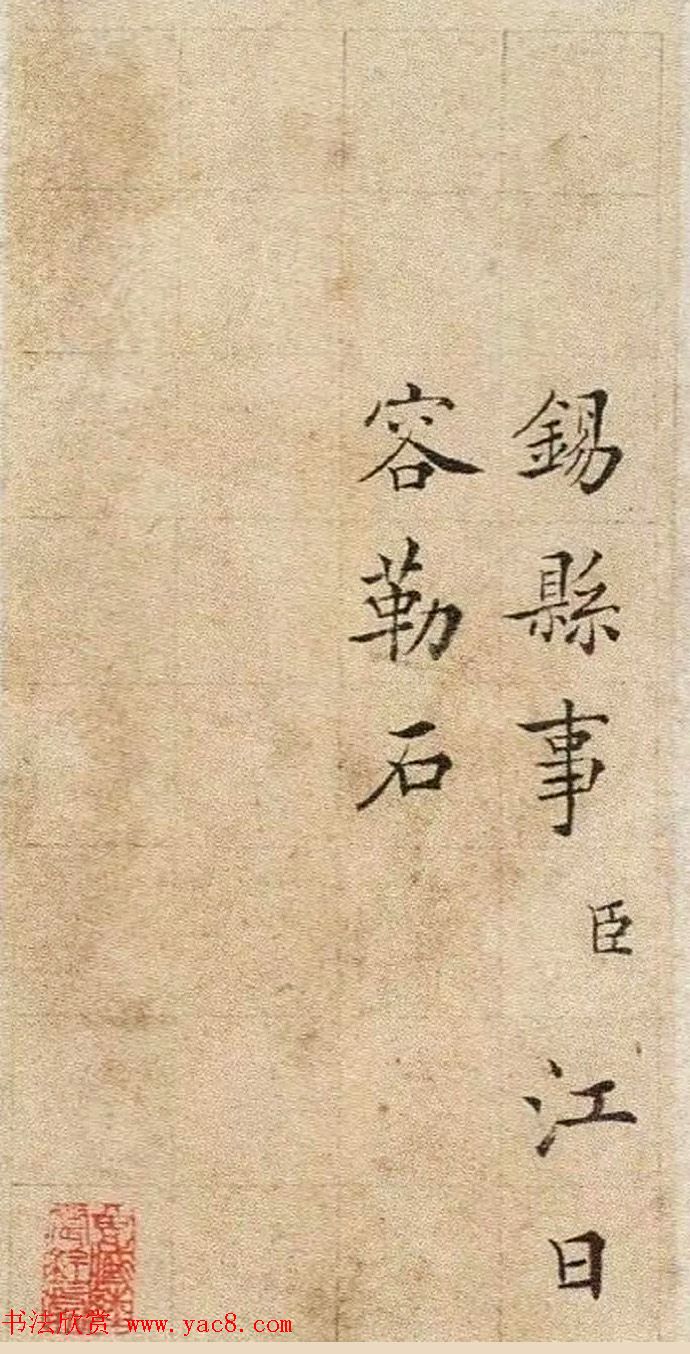 錫縣事臣江日
容勒石
书法欣赏 www.yac8.com